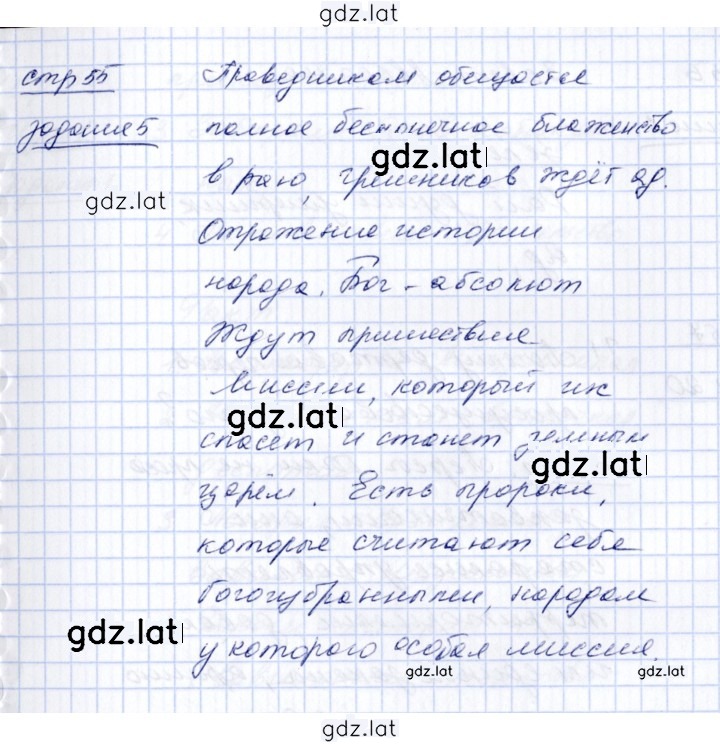 gdz.lat
стр 55 Праведникам обещается
задание 5 полное бесконечное блаженство
gdz.lat
gdz.lat в раю, грешников ждёт ад.
Отражение истории
народа. Бог - абсолют
Ждут пришествия
Миссии, который их
gdz.lat
спасет и станет земным
gdz.lat
царём. Есть пророки,
которые считают себя
богоизбранными, народом
gdz.lat
у которого особая миссия.
gdz.lat gdz.lat
gdz.lat